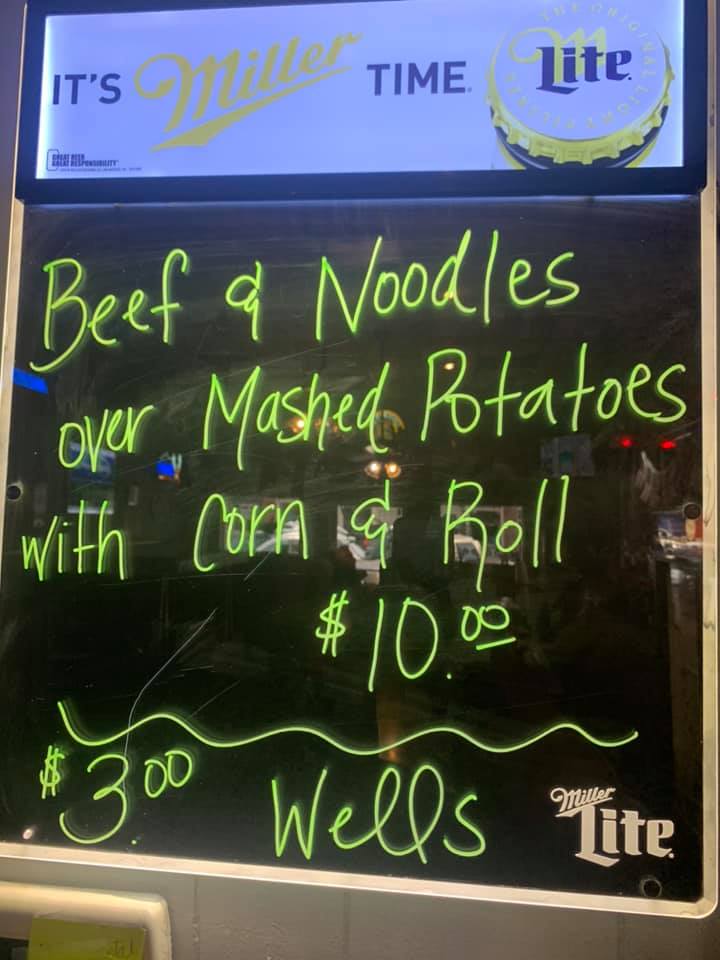 IT'S Miller TIME.
THE ORIGINAL LIGHT PILSNER
Lite
GREAT BEER
GREAT RESPONSIBILITY
Beef & Noodles
over Mashed Potatoes
with Corn & Roll
$10.00
$3.00 Wells
Miller
Lite